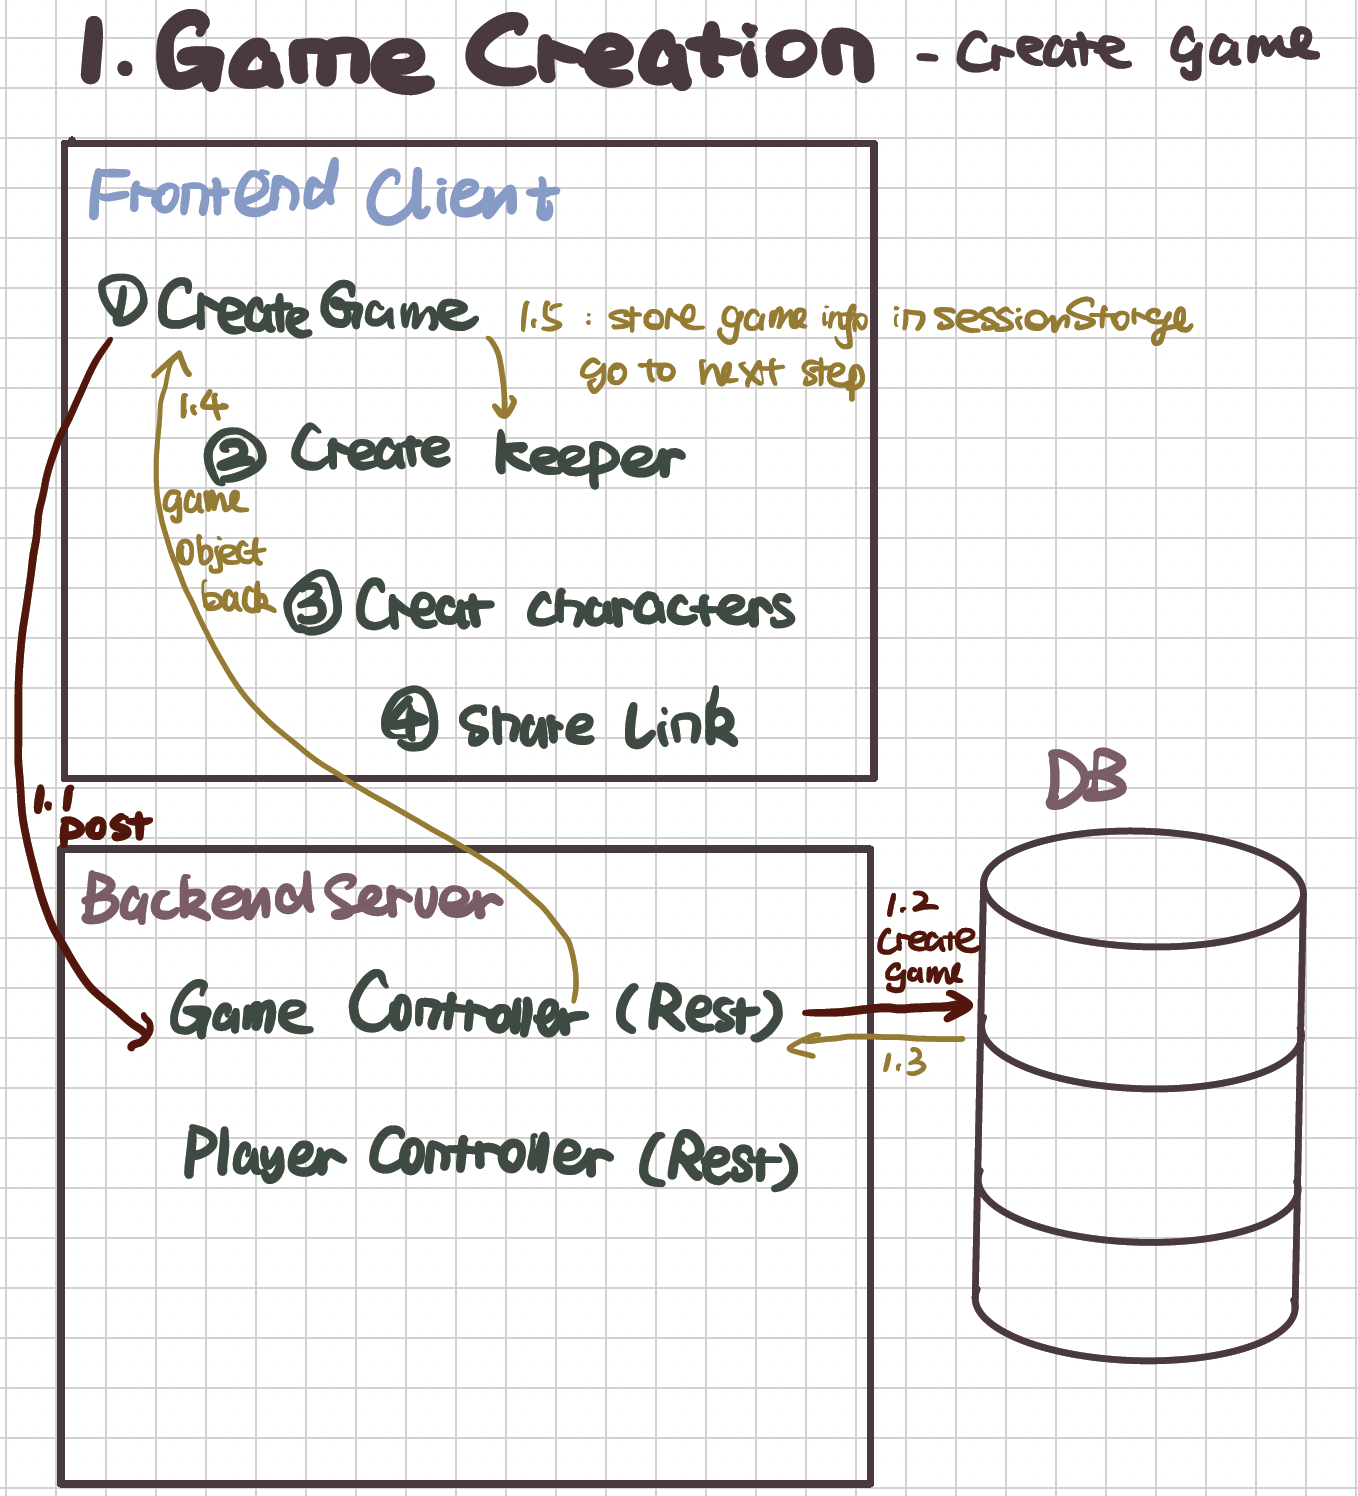 1. Game Creation - Create game
Frontend Client
① Create Game
1.5 : store game info in sessionStorge
go to next step
1.4
② Create keeper
game
object
back
③ Creat characters
④ Share Link
1.1
post
DB
Backend Server
1.2
Create
game
Game Controller (Rest)
1.3
Player Controller (Rest)